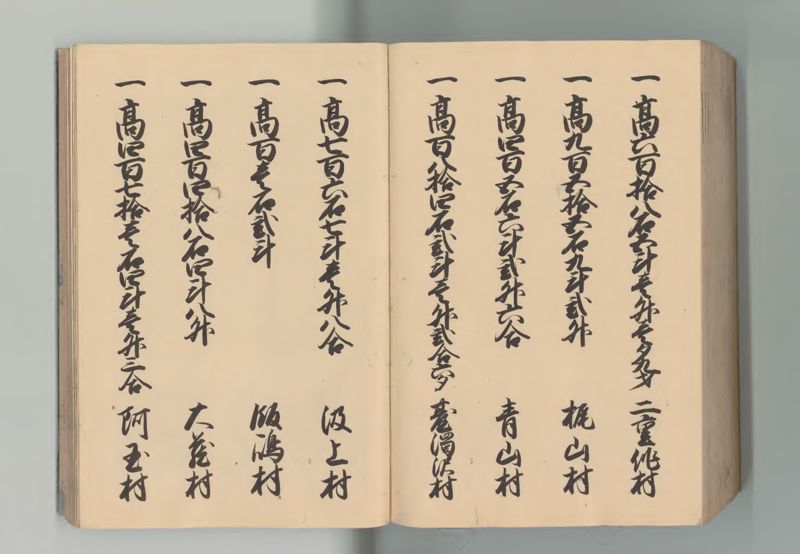 一 高六百拾八石六斗壱升壱夕九才 二重作村
一 高九百五拾五石九斗弐升 梶山村
一 高四百五石六斗弐升六合 青山村
一 高百八拾四石弐斗壱升弐合六夕 臺濁沢村
一 高七百六石七斗壱升八合 汲上村
一 高百壱石弐斗 飯嶋村
一 高四百四拾八石四斗八升 大蔵村
一 高四百七拾壱石四斗壱升三合 阿玉村